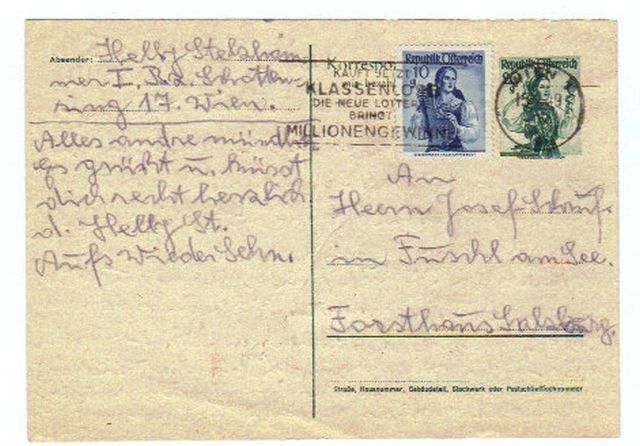 Absender: Helly Stelzhammer
mer I. Bez. Schotten-
ring 17. Wien.
Alles andre mündlich
es grüßt u. küsst
dich recht herzlich
d. Helly St.
Aufs Wiedersehn.
Korrespo
KAUFT JETZT
KLASSENLO
DIE NEUE LOTTERIE
BRINGT
MILLIONENGEWINNE
Republik Österreich
10
g
Republik Österreich
WIEN
An
Herrn Josef
in Fuschl am See.
Forsthaus Salzburg.
Straße, Hausnummer, Gebäudeteil, Stockwerk oder Postschließfachnummer